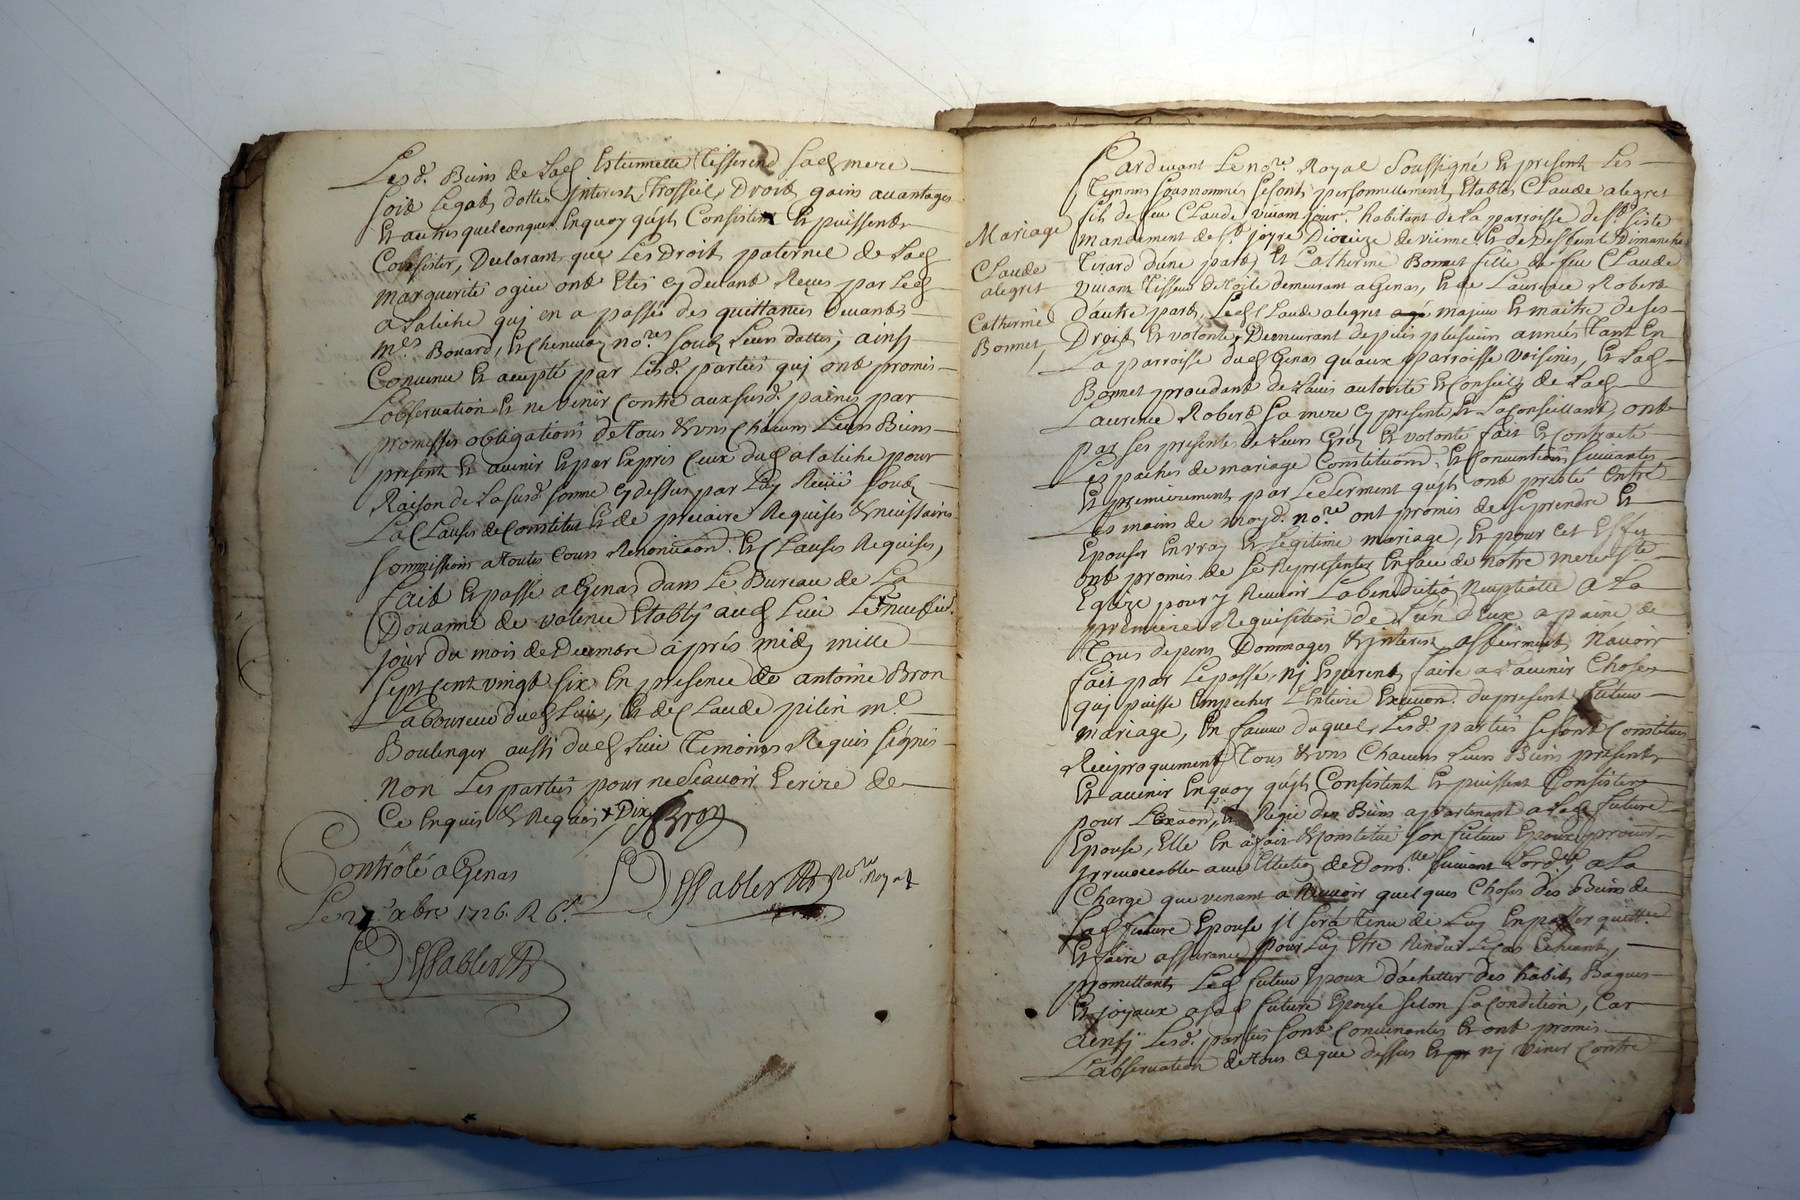 Lesd. Biens de Lad Estiennette Tisserend sad mere
soit Legat, dotte, Interest, Trossel, Droit, gains avantages
Et autres quelconques Enquoy quils Consistent Et puissent
Consister, Declarant que Les Droit paternel de Lad
Marguerite ogier ont Etes cy devant Receus par Led
qui en a passé des quittances devant
Mes Bouard, Et Chenevas nores Soub Leurs dattes, ainsy
Convenu Et accepté par Lesd. parties qui ont promis
L'observation Et ne venir Contre aux susd. paines par
promesses obligations de tous & uns Chacuns Leurs Biens
present Et avenir Et par Expres Ceux dud alaliche pour
Raison de La susd. somme cy dessus par Luy Receüe soub
La Clauses de Constitut Et de precaire Requises & necessaires
sommissions a toutes Cours Renonciaon. Et Clauses Requises,
fait Et passé a Genas dans Le Bureau de La
Douanne de valence Etably aud Lieu Le
jour du mois de Decembre après midy mille
sept cent vingt six En presence de antoine Bron
Laboureur dud Lieu, Et de Claude pitin me
Boulenger aussi dud Lieu temoins Requis signés
non Les parties pour ne scavoir Ecrire de
Ce Enquis & Requis Dix Bron
Contrôlé a Genas
Le xbre 1726. R 6s
Dessablettes nore Royal
Dessablettes
Mariage
Claude
alegret
Catherine
Bonnet
Pardevant Le nore Royal Soussigné Et present Les
Temoins sousnommés se sont personnellement Etablis Claude alegret
fils de feu Claude vivant jour. habitant de La parroisse de
mandement de st. joyre Diocèze de vienne Et de Deffeunte Dimanche
Tirard d'une part, Et Catherine Bonnet fille de feu Claude
vivant Tisseur de toile demeurant a Genas, Et de Laurence Robert
d'autre part, Led Claude alegret majeur Et maitre de ses
Droits Et volonté, Demeurant depuis plusieurs années Tant En
La parroisse dud Genas qu'aux parroisse voisines, Et Lad
Bonnet procedant de L'avis autorité Et Conseil de Lad
Laurence Robert sa mere cy presente Et La Conseillant, ont
par ses presentes de Leurs Gréz Et volonté fait Et Contracté
Les paches de mariage Constitutions, Et Conventions suivantes
Et premierement par Le serment quils ont presté Entre
Les mains de moyd. nore ont promis de se prendre Et
Epouser En vray Et Legitime mariage, Et pour cet Effet
ont promis de se Representer En face de notre mere ste
Eglize pour y Recevoir La benediction Neuptialle a La
premiere Requisition de L'un d'Eux a paine de
Tous depens Dommages & Interest, affirment N'avoir
fait par Lepassé, ny Esperent faire a L'avenir Choses
qui puisse Empecher L'Entiere Execuon. du present futeur
mariage, En faveur duquel Lesd. parties se sont Constitues
Reciproquement Tous & uns Chacuns Leurs Biens present
Et avenir Enquoy quils Consistent Et puissent Consister
pour L'Exaon, Et Regie des Biens appartenant a Lad future
Epouse, Elle En a fait & Constitué son futeur Epoux procur.
Irrevocable avec Election de Dom.lle suivant L'ord.ce a La
Charge que venant a Recevoir quelques Choses des Biens de
Lad future Epouse il sera Tenu de Luy En passer quittce
Et faire assurance pour Luy Etre Rendu Le cas Echeant,
promettant Led futeur Epoux d'achetter des habits Bagues
Et joyaux a sad future Epouse selon sa Condition, Car
ainsy Lesd. parties sont Convenantes Et ont promis
L'observation de tous ce que dessus Et ny venir Contre